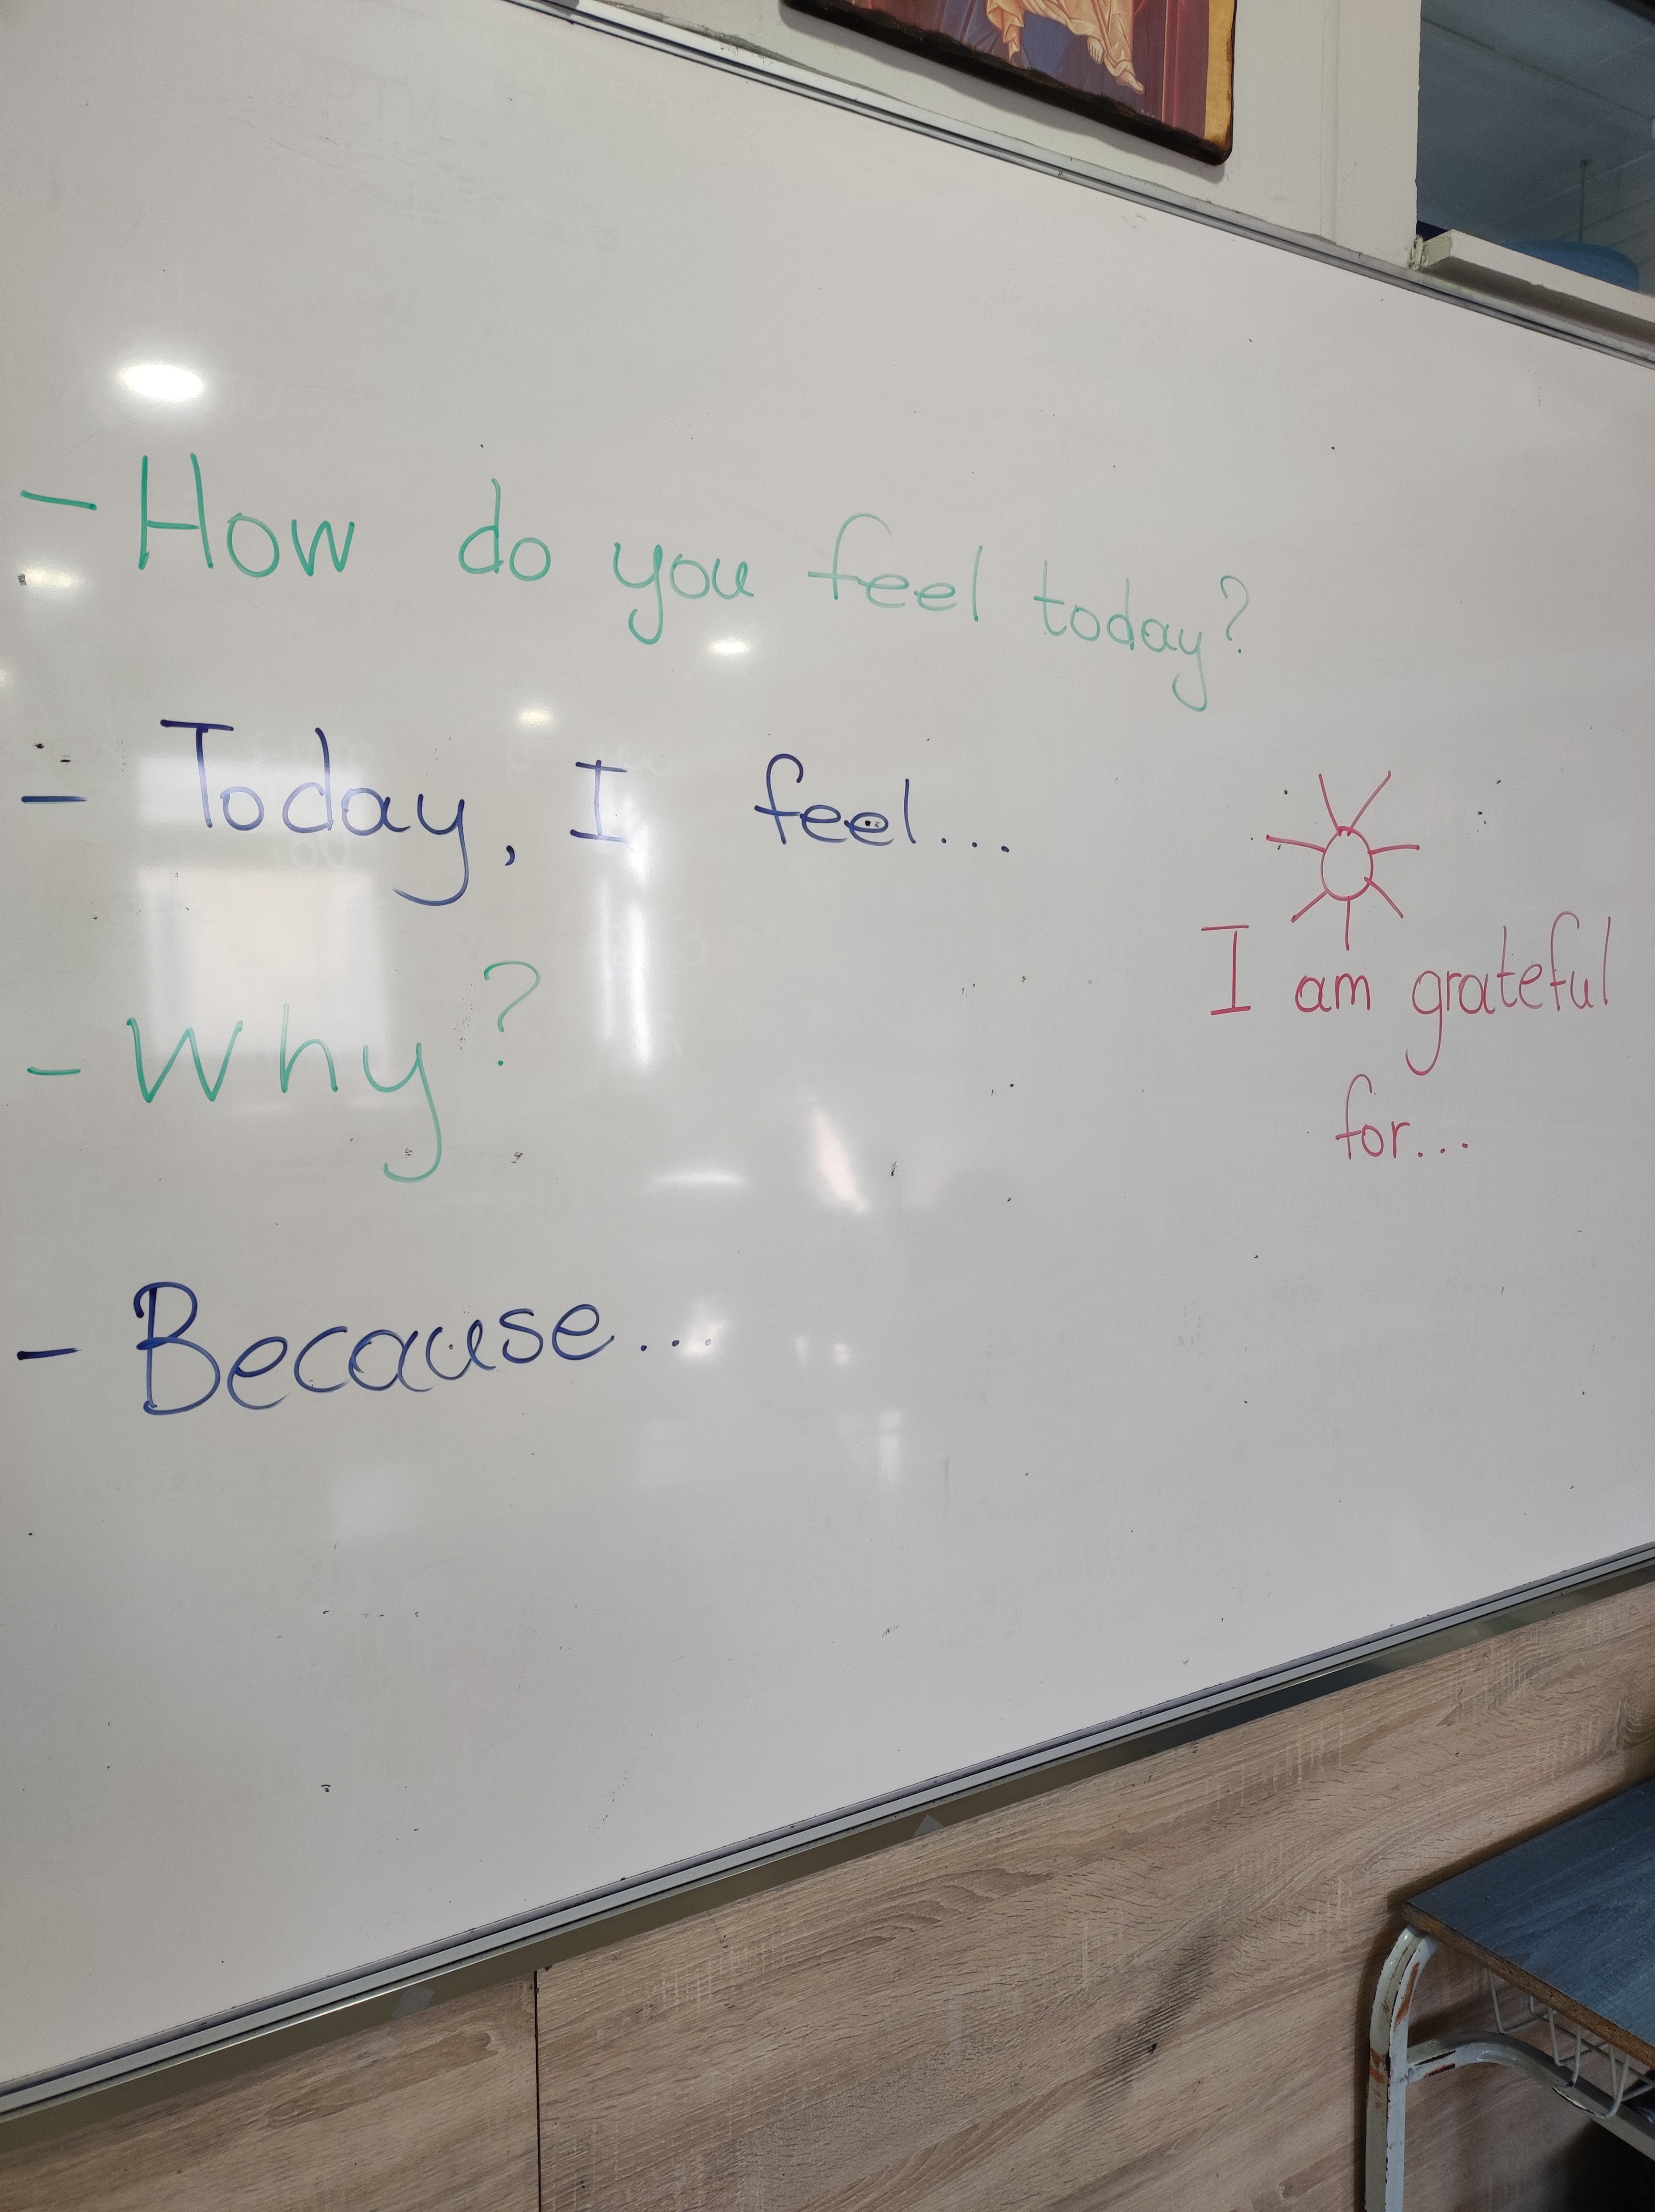 - How do you feel today?
- Today, I feel...
- Why?
- Because...
I am grateful
for...